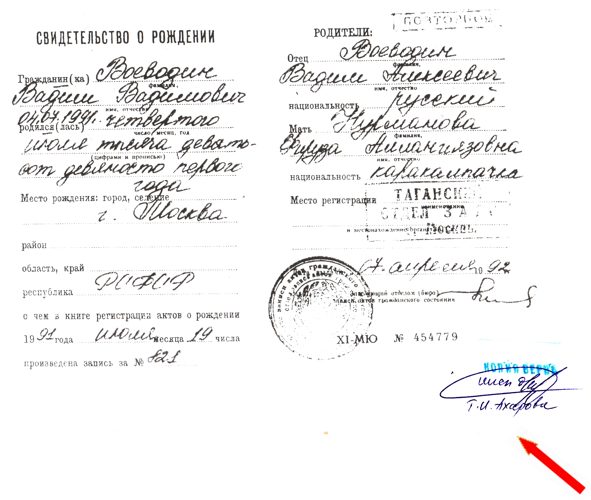 СВИДЕТЕЛЬСТВО О РОЖДЕНИИ
Гражданин(ка) Воеводин
фамилия,
Вадим Вадимович
имя, отчество
родился(лась) 04.07.1991. четвертого
число, месяц, год
июля тысяча девять-
сот девяносто первого
(цифрами и прописью)
года
Место рождения: город, селение
г. Москва.
район
область, край
республика РСФСР
о чем в книге регистрации актов о рождении
1991 года июля месяца 19 числа
произведена запись за № 821
ПОВТОРНОЕ
РОДИТЕЛИ:
Отец Воеводин
фамилия,
Вадим Алексеевич
имя, отчество
национальность русский
Мать Нурманова
фамилия,
Алланиязовна
имя, отчество
национальность каракалпачка
Место регистрации ТАГАНСКИЙ
наименование
ОТДЕЛ ЗАГС
г. Москвы
и местонахождение органа
17 апреля 1992
Заведующий отделом (бюро)
записи актов гражданского состояния
XI-МЮ № 454779
КОПИЯ ВЕРНА